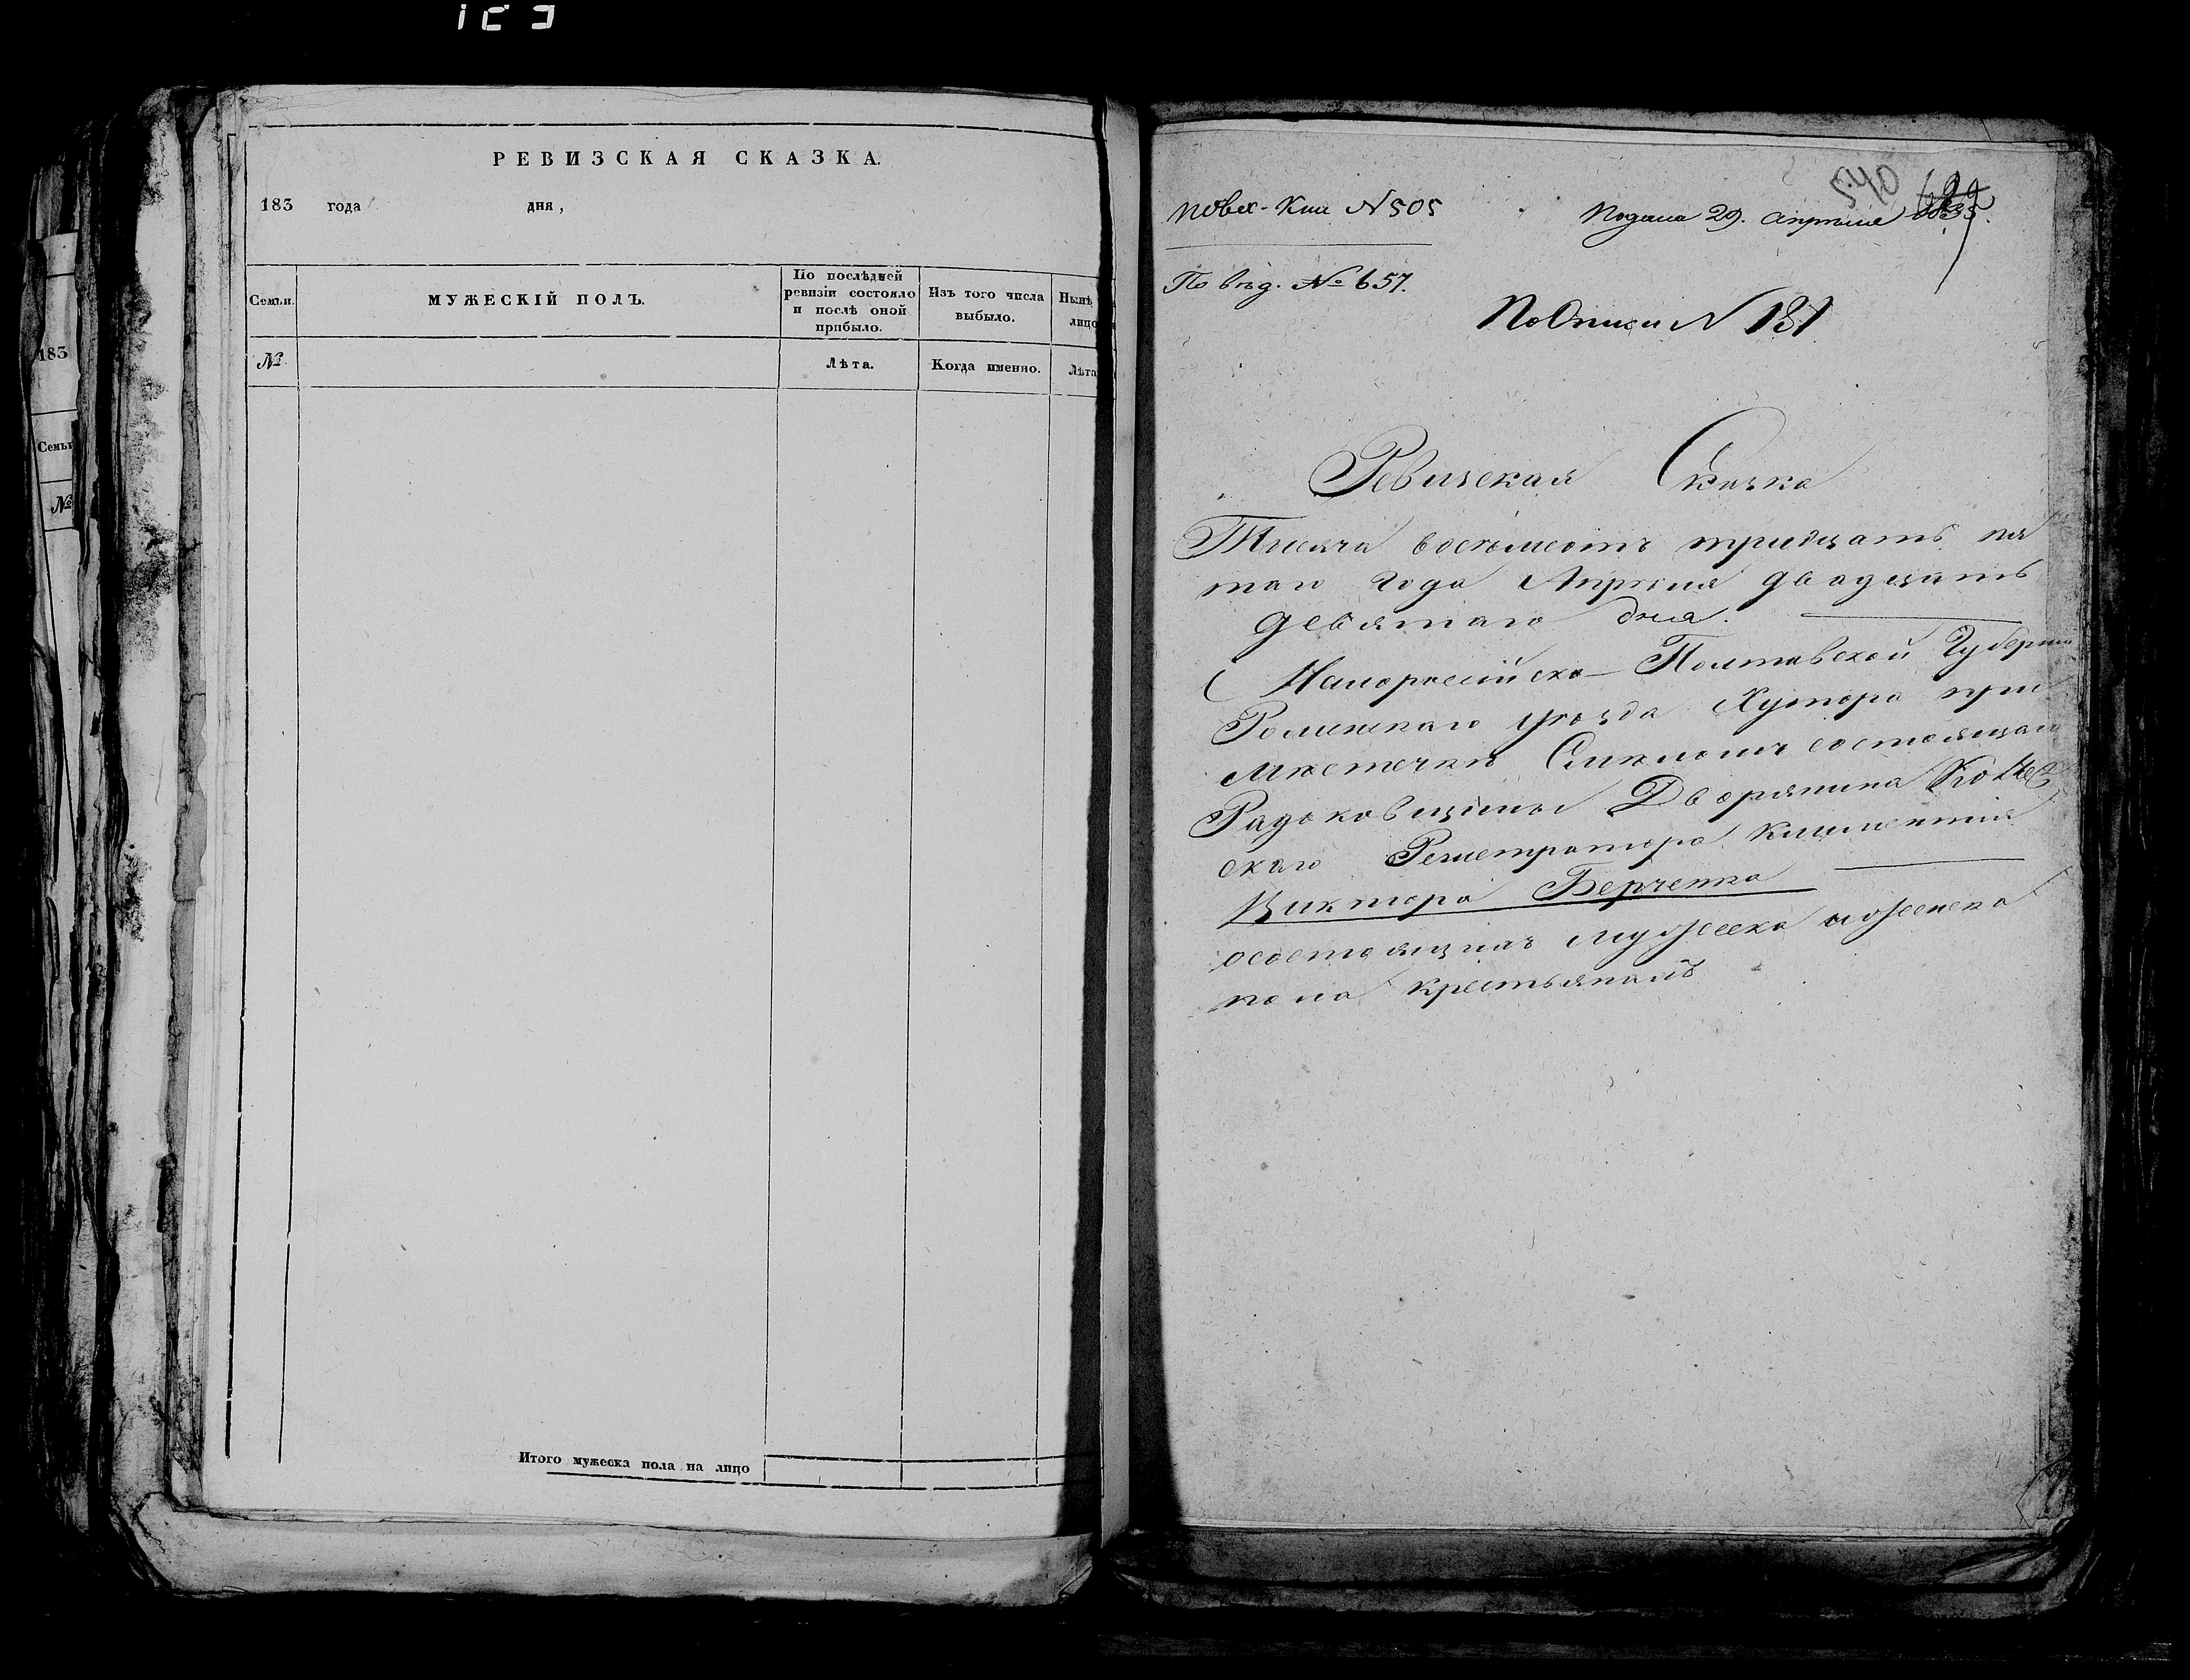 РЕВИЗСКАЯ СКАЗКА.
183 года дня,
Семьи.
МУЖЕСКІЙ ПОЛЪ.
По послѣдней ревизіи состояло и послѣ оной прибыло.
Изъ того числа выбыло.
Нынѣ
лицо
№
Лѣта.
Когда именно.
Лѣта
Итого мужеска пола на лицо
183
Семьи
№
540
Повх- Кни N 505
Подана 29. апреля 1835.
По вед. № 657.
По Описи N 131
Ревизская Сказка
Тысяча восемьсотъ тридцать пя
таго года Апреля двадцать
девятаго дня.
Малоросійско-Полтавской Губерніи
Роменскаго уѣзда Хутора при
мѣстечкѣ Смиломъ состоящаго
Дворянина Колеж
скаго Регистратора
Виктора Берченка
осостоящихъ мужеска иженска
пола крестьянахъ